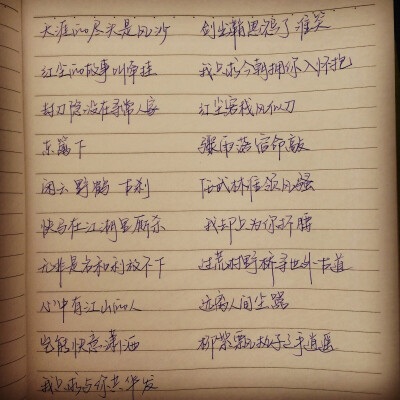 天涯的尽头是风沙
红尘的故事叫牵挂
封刀隐没在寻常人家
东篱下
闲云野鹤 古刹
快马在江湖里厮杀
无非是名和利放不下
心中有江山的人
岂能快意潇洒
我只求与你共华发
剑出鞘恩怨了 谁笑
我只求今朝拥你入怀抱
红尘客栈风似刀
骤雨落宿命敲
任武林谁领风骚
我却只为你折腰
过荒村野桥寻世外古道
远离人间尘嚣
柳絮飘执子之手逍遥